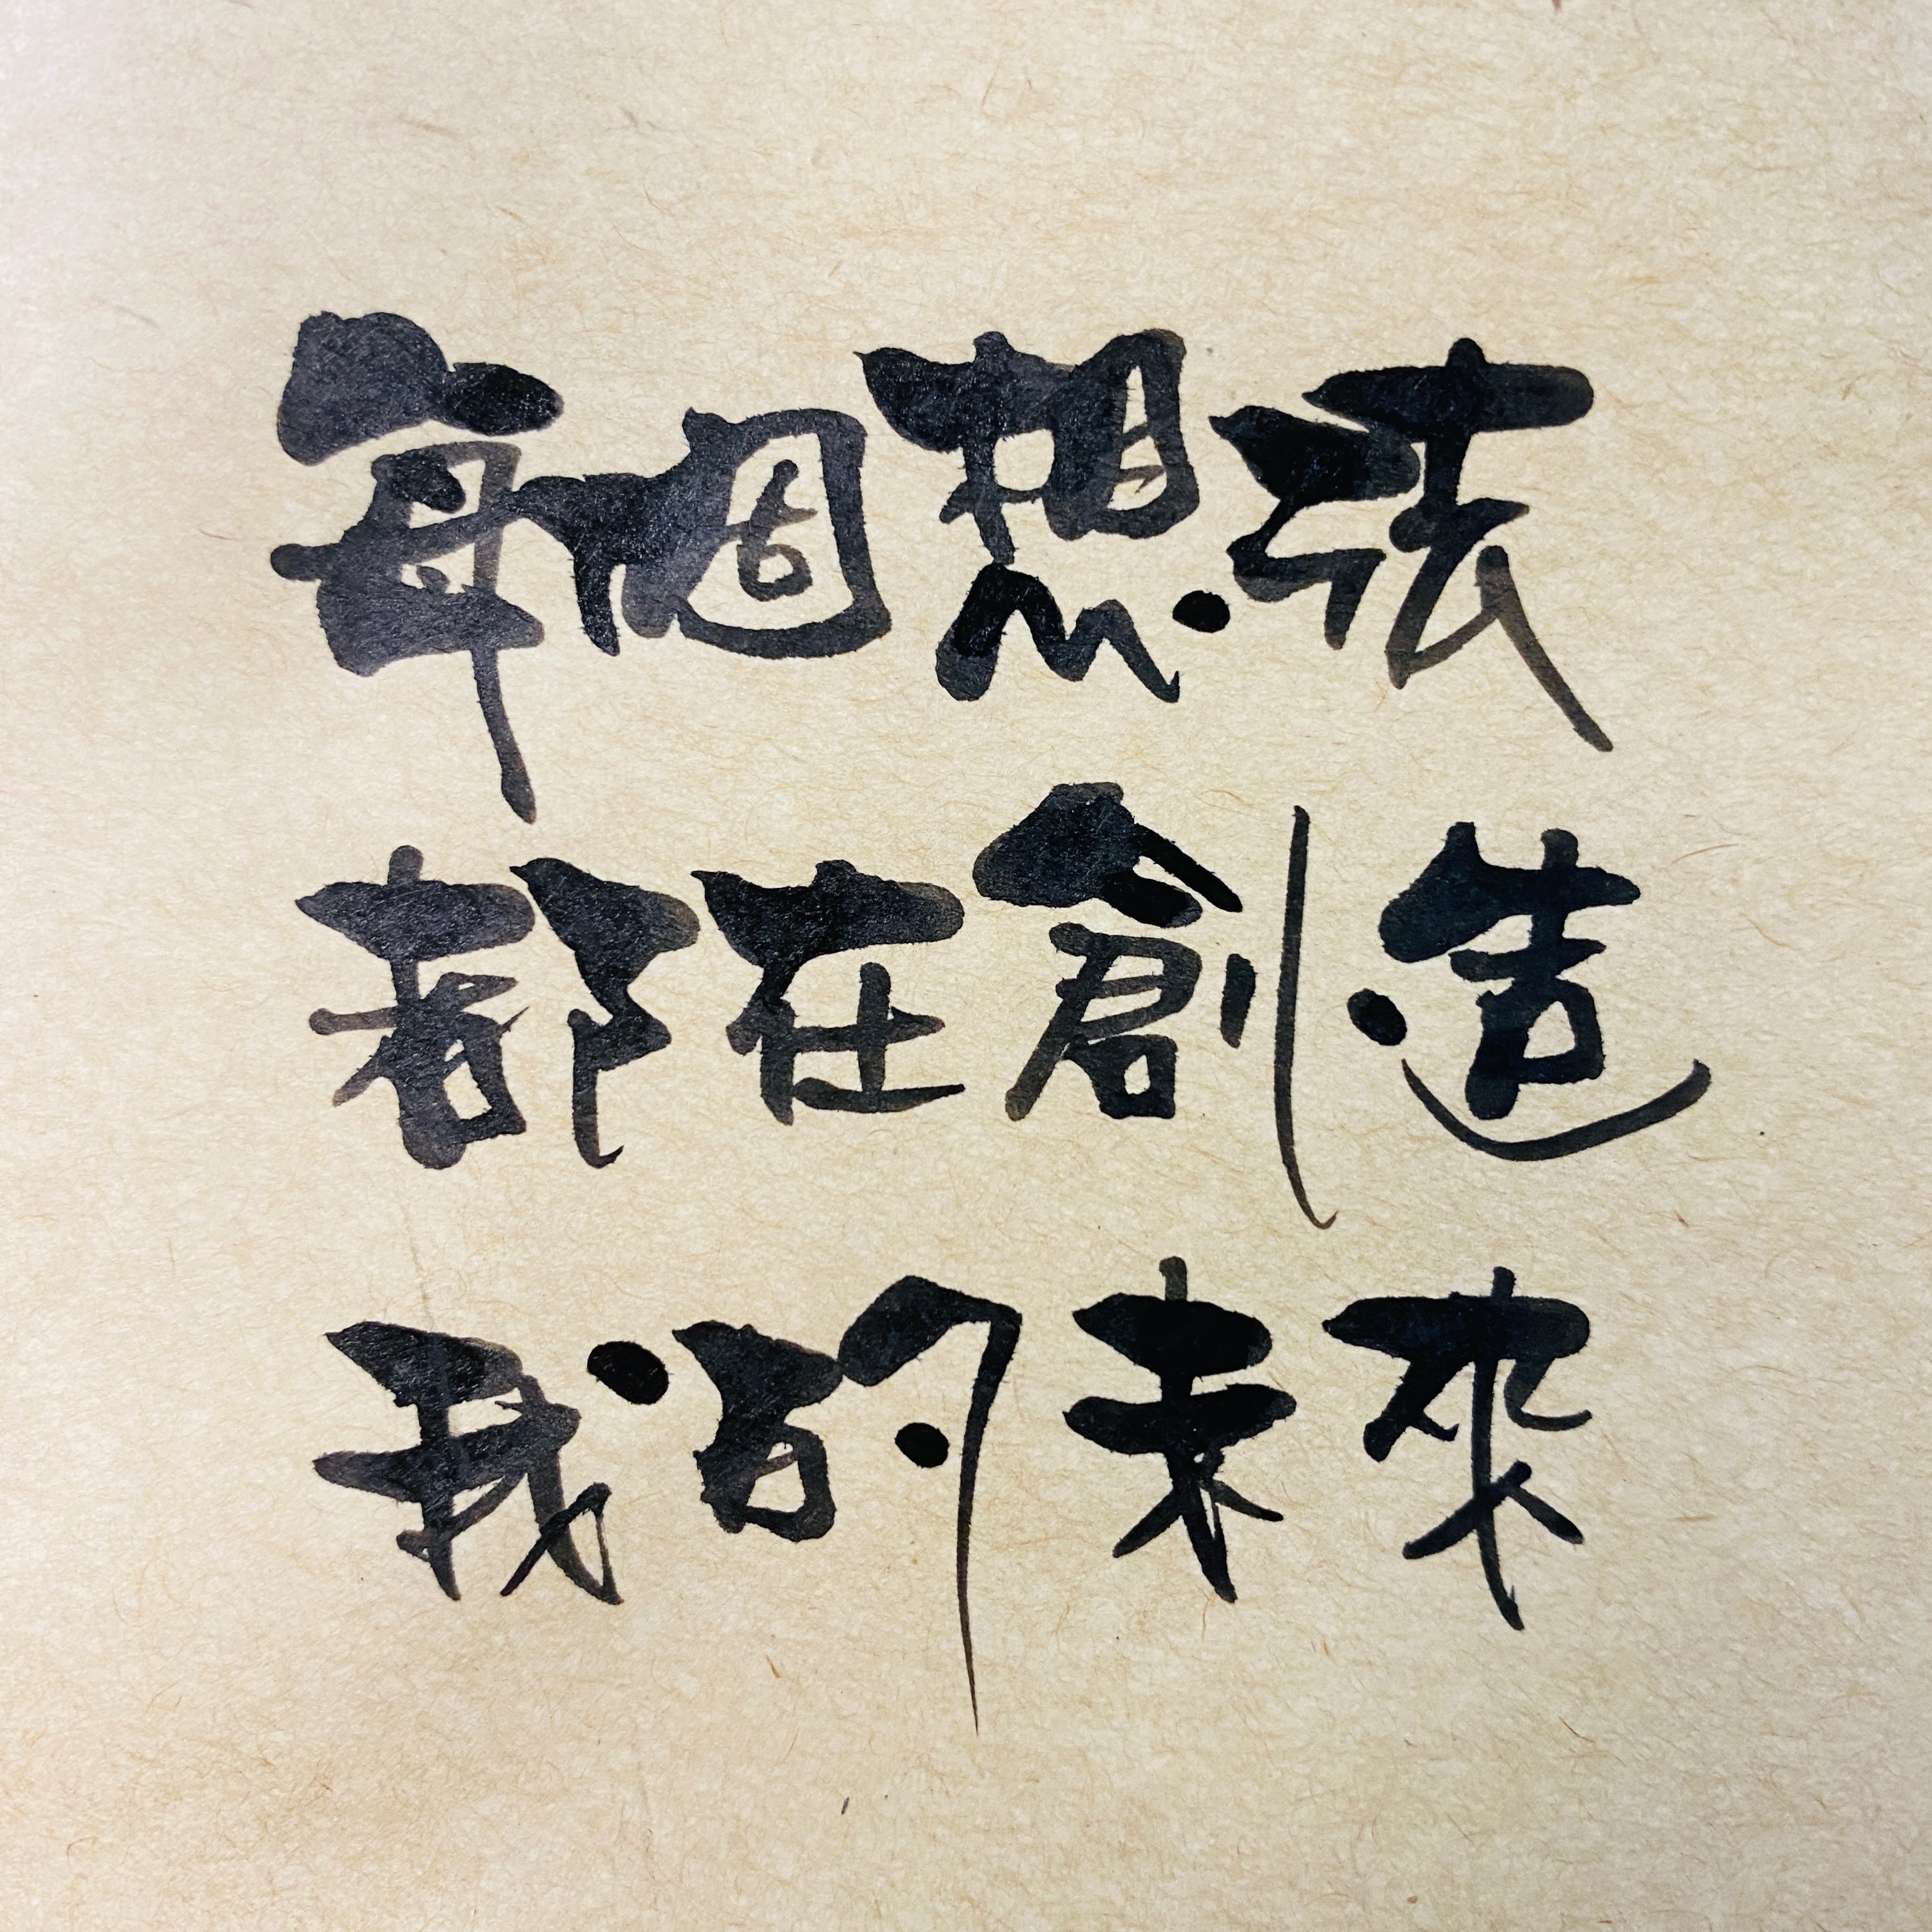 每個想法
都在創造
我的未來